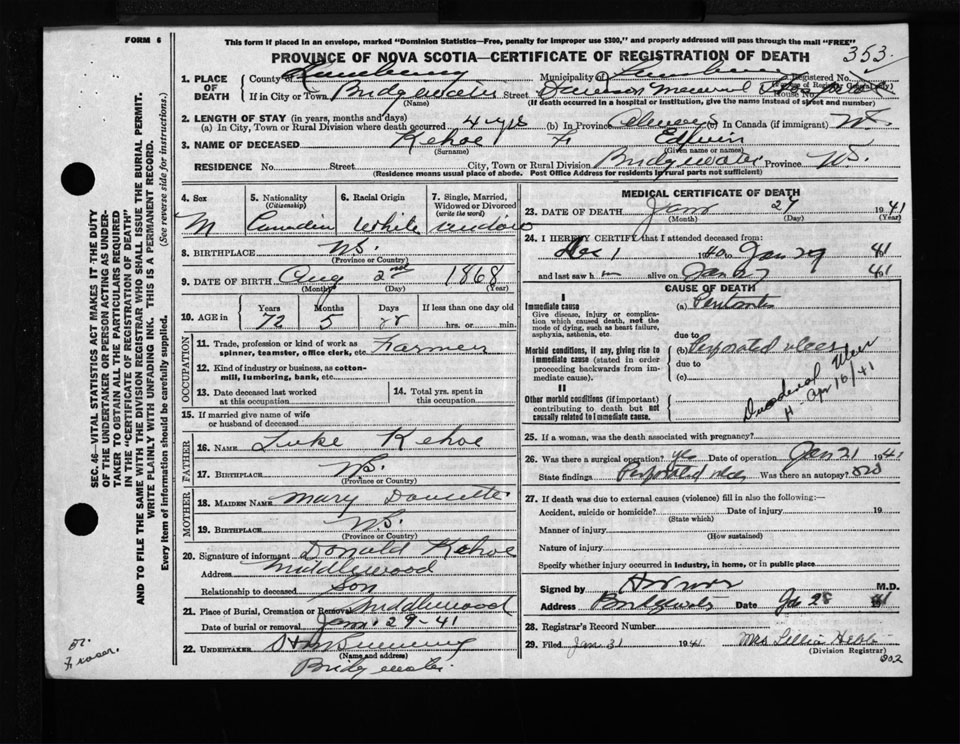 FORM 6
This form if placed in an envelope, marked "Dominion Statistics—Free, penalty for improper use $300," and properly addressed will pass through the mail "FREE"
PROVINCE OF NOVA SCOTIA—CERTIFICATE OF REGISTRATION OF DEATH 353
SEC. 46—VITAL STATISTICS ACT MAKES IT THE DUTY
OF THE UNDERTAKER OR PERSON ACTING AS UNDER-
TAKER TO OBTAIN ALL THE PARTICULARS REQUIRED
IN THE "CERTIFICATE OF REGISTRATION OF DEATH"
AND TO FILE THE SAME WITH THE DIVISION REGISTRAR WHO SHALL ISSUE THE BURIAL PERMIT.
WRITE PLAINLY WITH UNFADING INK. THIS IS A PERMANENT RECORD.
Every item of information should be carefully supplied. (See reverse side for instructions.)
1. PLACE OF DEATH
County of Lunenburg Municipality of Lunenburg Registered No.
If in City or Town Bridgewater Street Dawson Memorial Hospital House No.
(Name) (If death occurred in a hospital or institution, give the name instead of street and number)
2. LENGTH OF STAY (in years, months and days)
(a) In City, Town or Rural Division where death occurred 4 yrs (b) In Province Always (c) In Canada (if immigrant)
3. NAME OF DECEASED Kehoe
(Surname) (Given name or names)
RESIDENCE No. Street City, Town or Rural Division Bridgewater Province N.S.
(Residence means usual place of abode. Post Office Address for residents in rural parts not sufficient)
4. Sex M
5. Nationality (Citizenship) Canadian
6. Racial Origin White
7. Single, Married, Widowed or Divorced (write the word) widow
8. BIRTHPLACE N.S.
(Province or Country)
9. DATE OF BIRTH Aug 2nd 1868
(Month) (Day) (Year)
10. AGE in Years 72 Months 5 Days If less than one day old hrs. or min.
OCCUPATION
11. Trade, profession or kind of work as spinner, teamster, office clerk, etc. Farmer
12. Kind of industry or business, as cotton-mill, lumbering, bank, etc.
13. Date deceased last worked at this occupation
14. Total yrs. spent in this occupation
15. If married give name of wife or husband of deceased
FATHER
16. NAME Luke Kehoe
17. BIRTHPLACE N.S.
(Province or Country)
MOTHER
18. MAIDEN NAME Mary
19. BIRTHPLACE N.S.
(Province or Country)
20. Signature of informant Donald Kehoe
Address Middlewood
Relationship to deceased Son
21. Place of Burial, Cremation or Removal Middlewood
Date of burial or removal Jan. 29-41
22. UNDERTAKER
(Name and address)
Bridgewater
MEDICAL CERTIFICATE OF DEATH
23. DATE OF DEATH Jan 27 1941
(Month) (Day) (Year)
24. I HEREBY CERTIFY that I attended deceased from:
Dec 1 1940 to Jan 27 41
and last saw h m alive on Jan 27 41
CAUSE OF DEATH
I
Immediate cause
Give disease, injury or complication which caused death, not the mode of dying, such as heart failure, asphyxia, asthenia, etc.
(a) Peritonitis
due to
Morbid conditions, if any, giving rise to immediate cause (stated in order proceeding backwards from immediate cause).
(b) Perforated ulcer
due to
(c)
II
Other morbid conditions (if important) contributing to death but not causally related to immediate cause.
Duodenal Ulcer
H. Apr 16/41
25. If a woman, was the death associated with pregnancy?
26. Was there a surgical operation? yes Date of operation Jan 21 1941
State findings Perforated ulcer Was there an autopsy? no
27. If death was due to external causes (violence) fill in also the following:—
Accident, suicide or homicide? Date of injury 19
(State which)
Manner of injury
(How sustained)
Nature of injury
Specify whether injury occurred in industry, in home, or in public place
Signed by M.D.
Address Bridgewater Date Jan 28 41
28. Registrar's Record Number
29. Filed Jan 31 1941 Mrs Lillian Hebb
(Division Registrar)
302